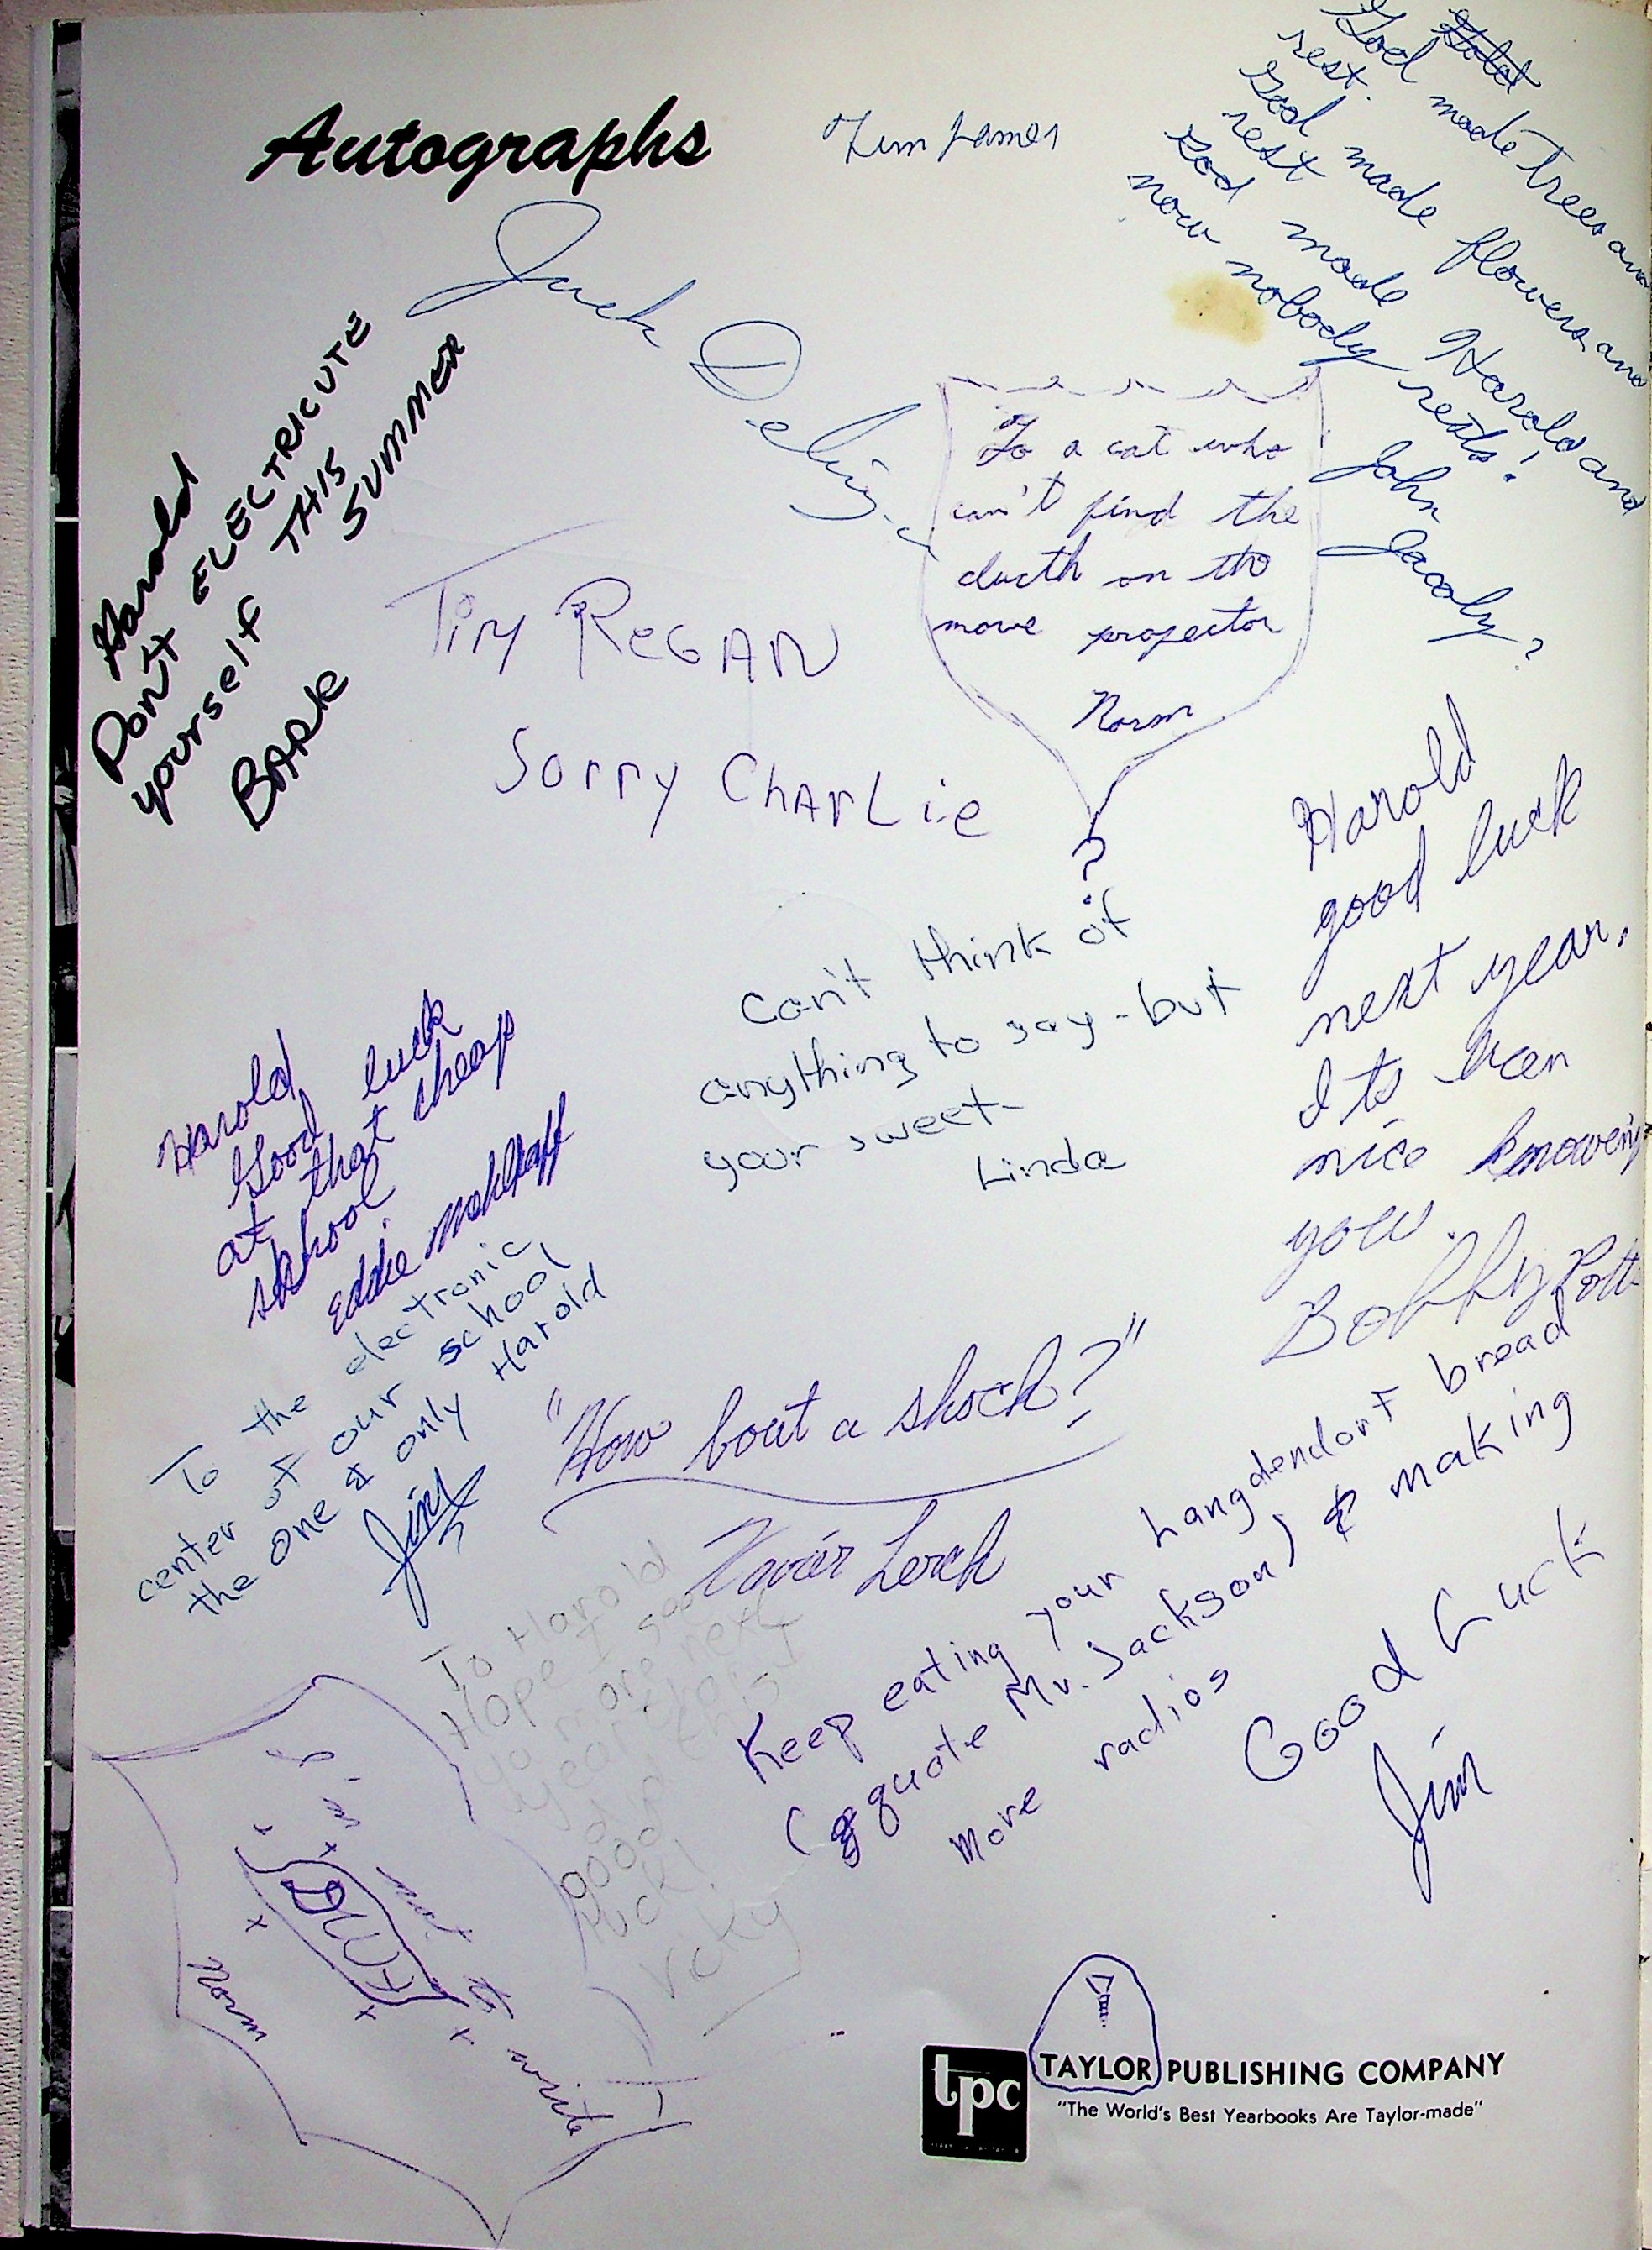 Autographs
God made trees and
rest.
God made flowers and
rest
God made Harold and
now nobody rests!
John
Jacoly?
Jack
Harold
Don't ELECTRICUTE
yourself THIS
SUMMER
BARK
To a cat who
can't find the
clucth on the
move projector
Norm
?
Tim ReGAN
Sorry CHArLie
Harold
good luck
next year.
Its been
nice knoweing
you.
Bobby
Can't think of
anything to say - but
your sweet -
Linda
Harold
Good luck
at that cheap
skhool.
Eddie
To the electronic
center of our school
the one & only Harold
Jim
"How bout a shock?"
Xavier Lerch
To Harold
Hope I see
ya more next
year
good
luck!
Vicky
Keep eating your Langdendorf bread
(quote Mr. Jackson) & making
more radios
Good Luck
Jim
I'm
not
to
write
Norm
tpc
TAYLOR PUBLISHING COMPANY
"The World's Best Yearbooks Are Taylor-made"